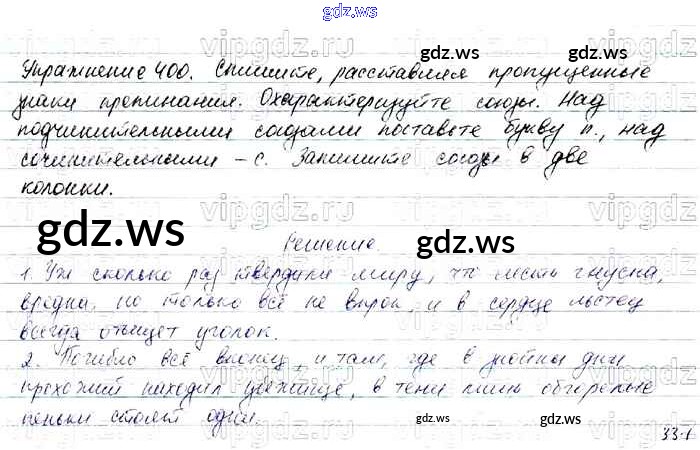 gdz.ws
Упражнение 400. Спишите, расставляя пропущенные
знаки препинания. Охарактеризуйте союзы. Над
подчинительными союзами поставьте букву п., над
сочинительными – с. Запишите союзы в две
колонки.
Решение.
1. Уж сколько раз твердили миру, что лесть гнусна,
вредна, но только всё не впрок, и в сердце льстец
всегда отыщет уголок.
2. Погибло всё вконец, и там, где в знойны дни
прохожий находил убежище, в тени лишь обгорелые
пеньки стоят одни.
331